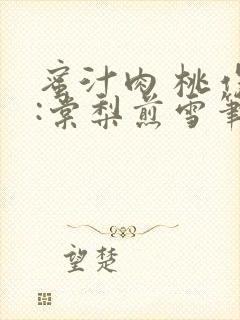 蜜汁肉桃作
:棠梨煎雪筆
望楚